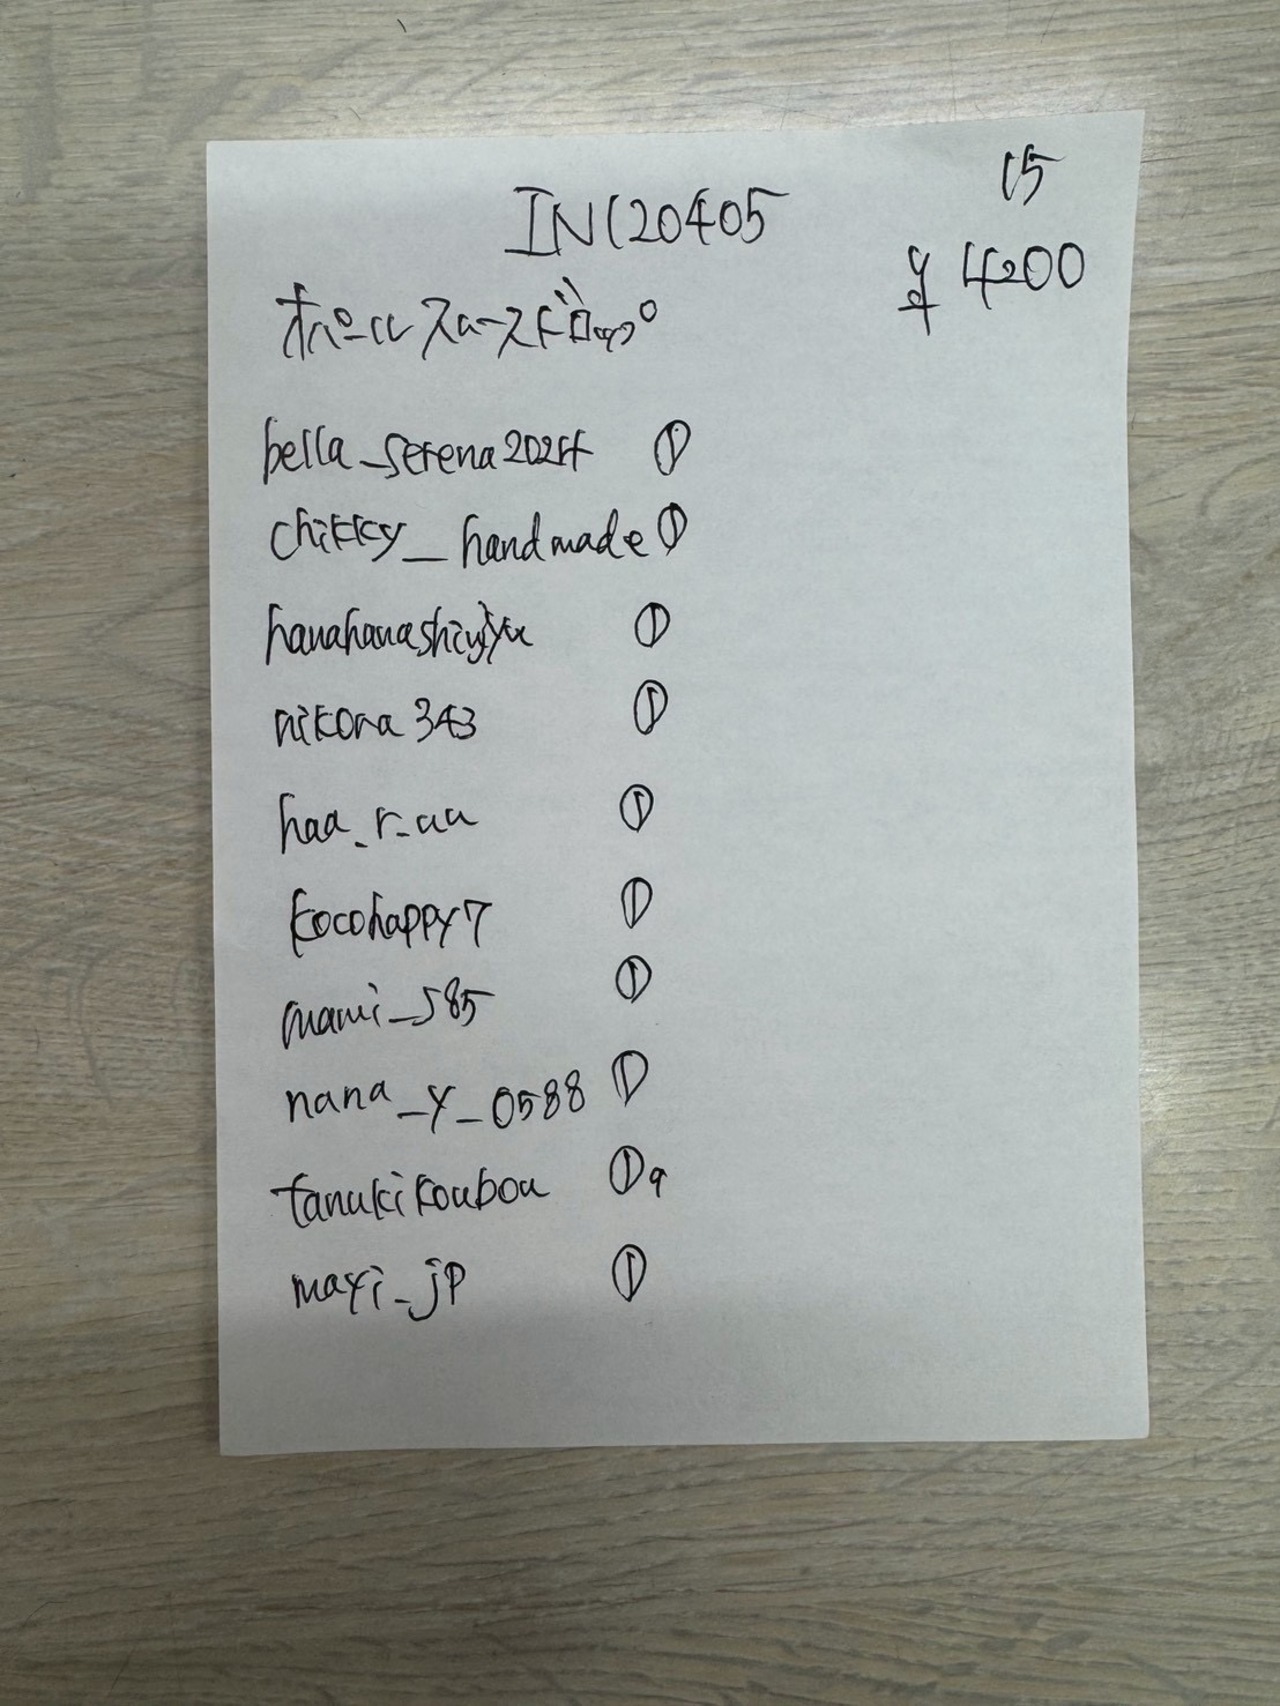 15
IN120405
¥4200
オパールスムースドロップ
bella_serena2024 ①
chikky_handmade ①
hanahanashinjyu ①
nikora343 ①
haa_r_aa ①
kocohappy7 ①
mami_s85 ①
nana_y_0588 ①
tanukikoubou ①
mayi_jp ①